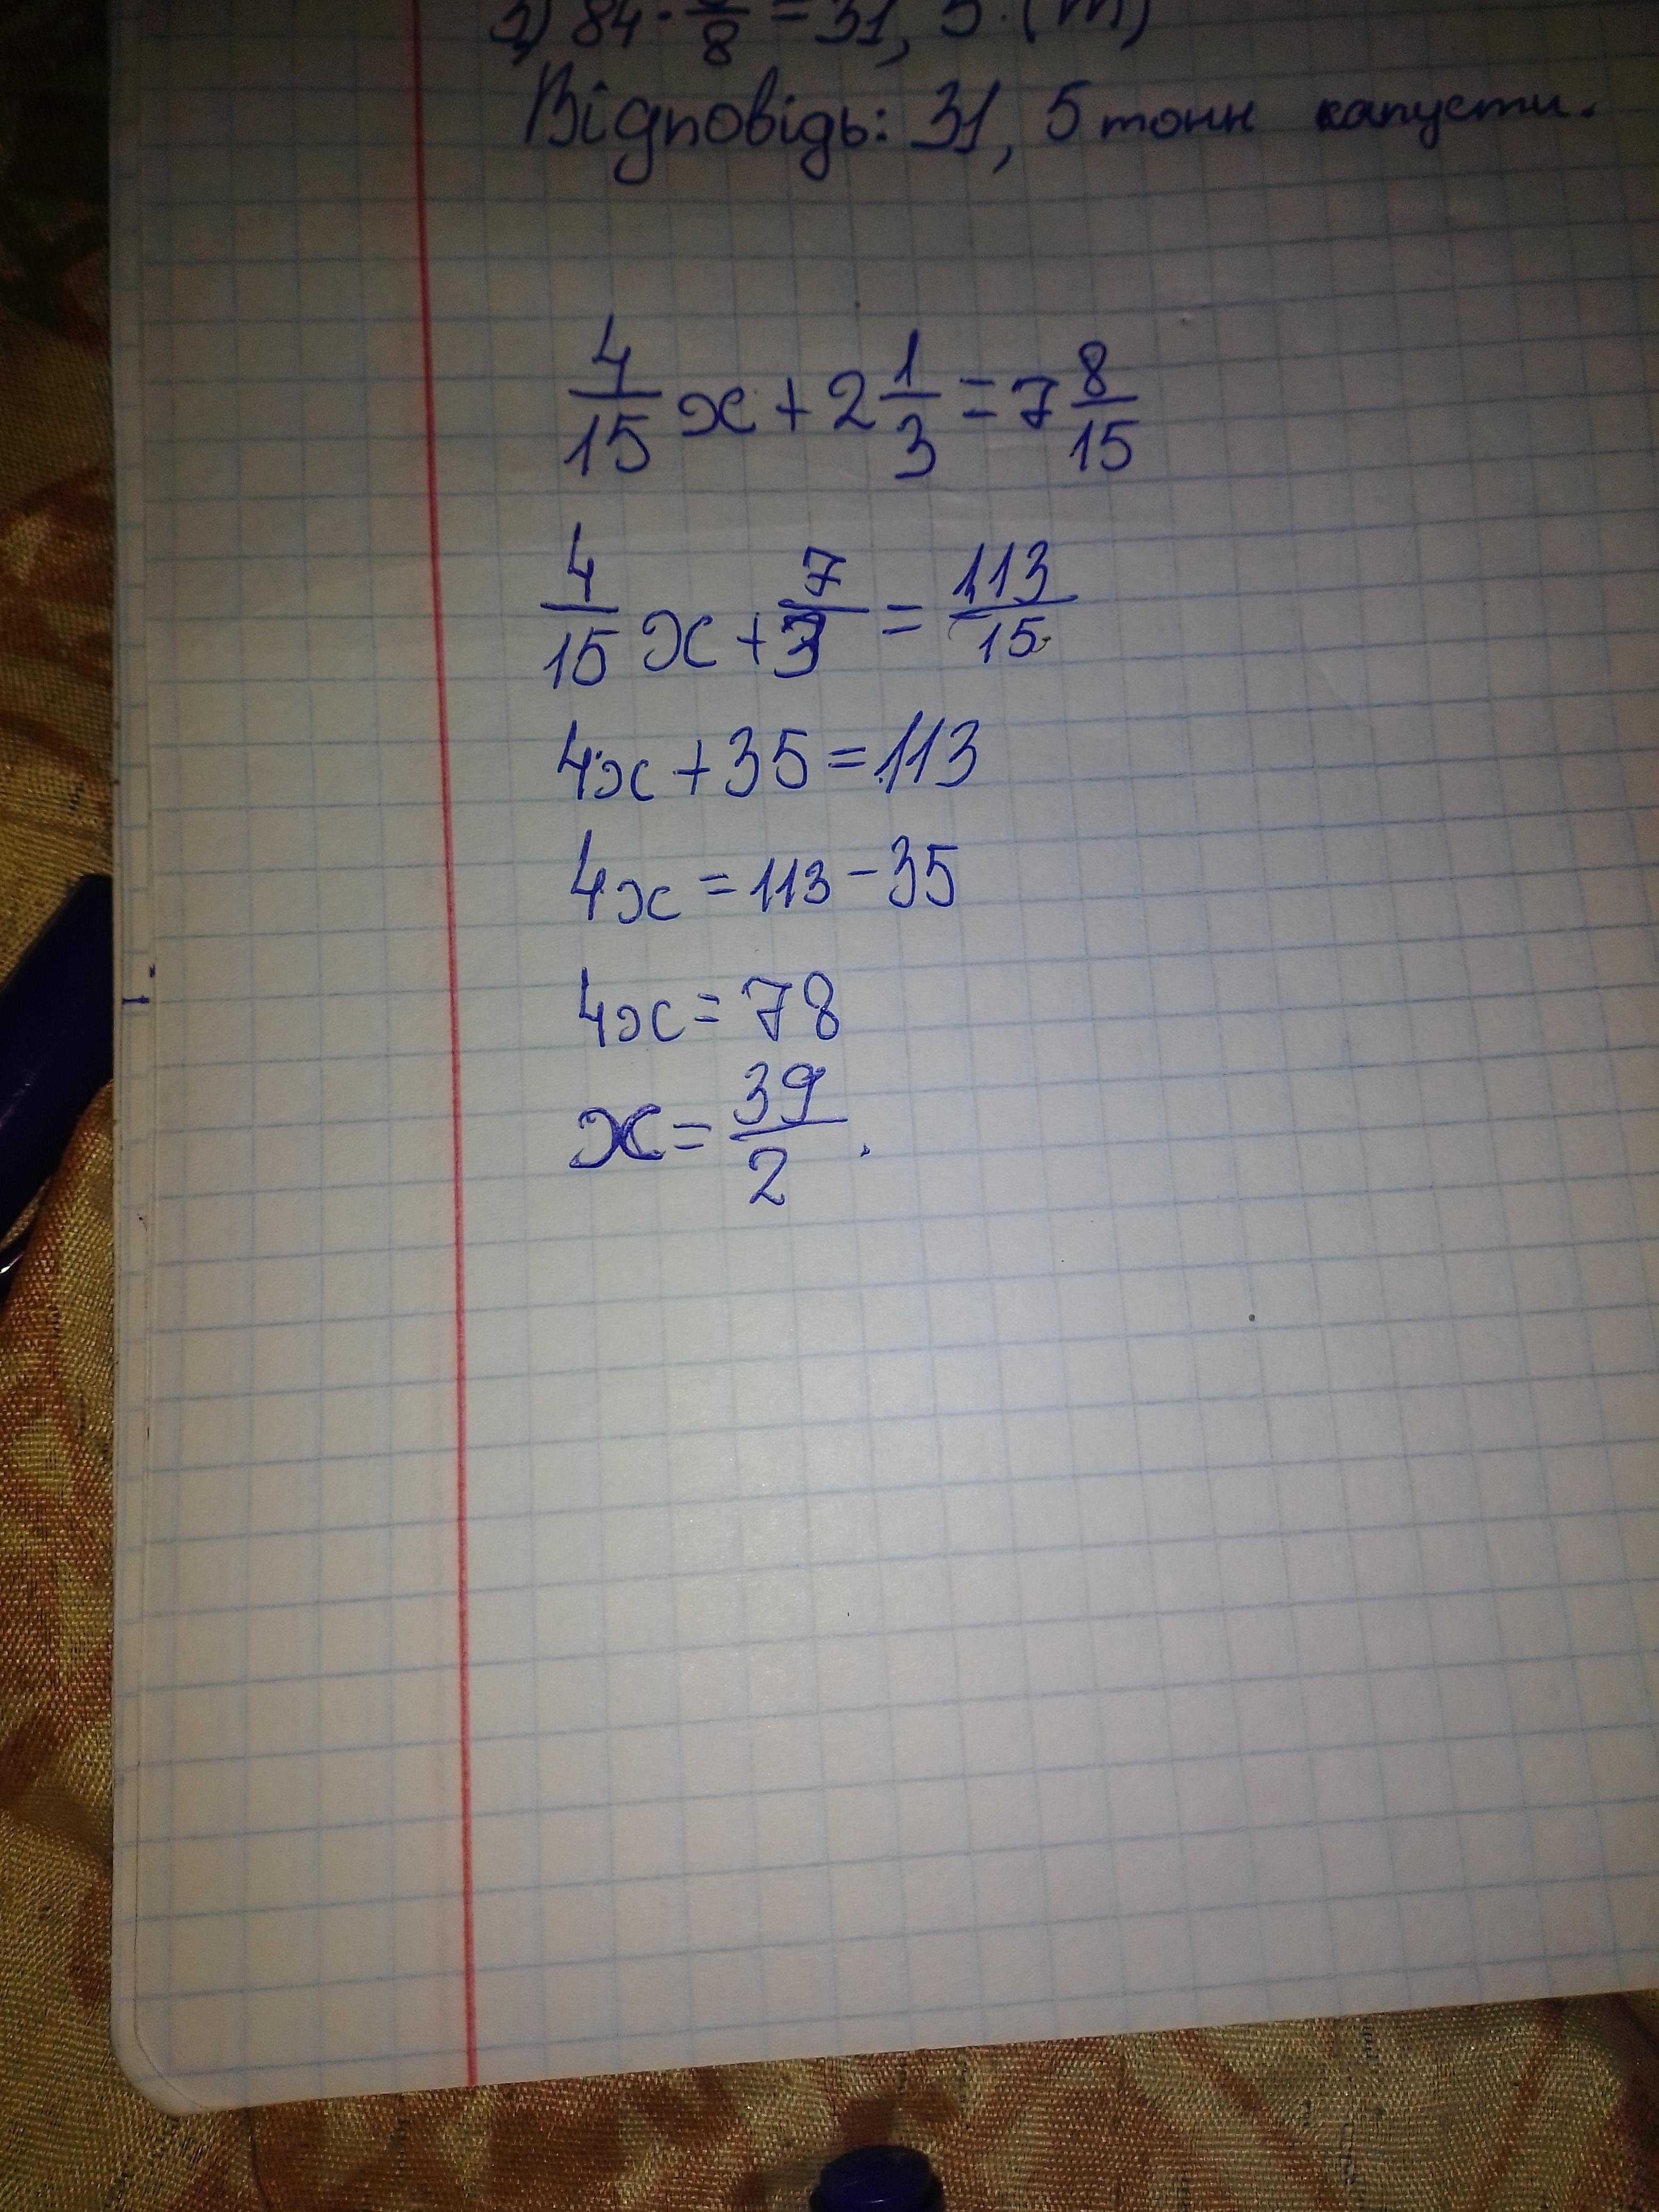 84 · /8 = 31, 5 (т)
Відповідь: 31, 5 тонн капусти.
4/15 x + 2 1/3 = 7 8/15
4/15 x + 7/3 = 113/15
4x + 35 = 113
4x = 113 - 35
4x = 78
x = 39/2.